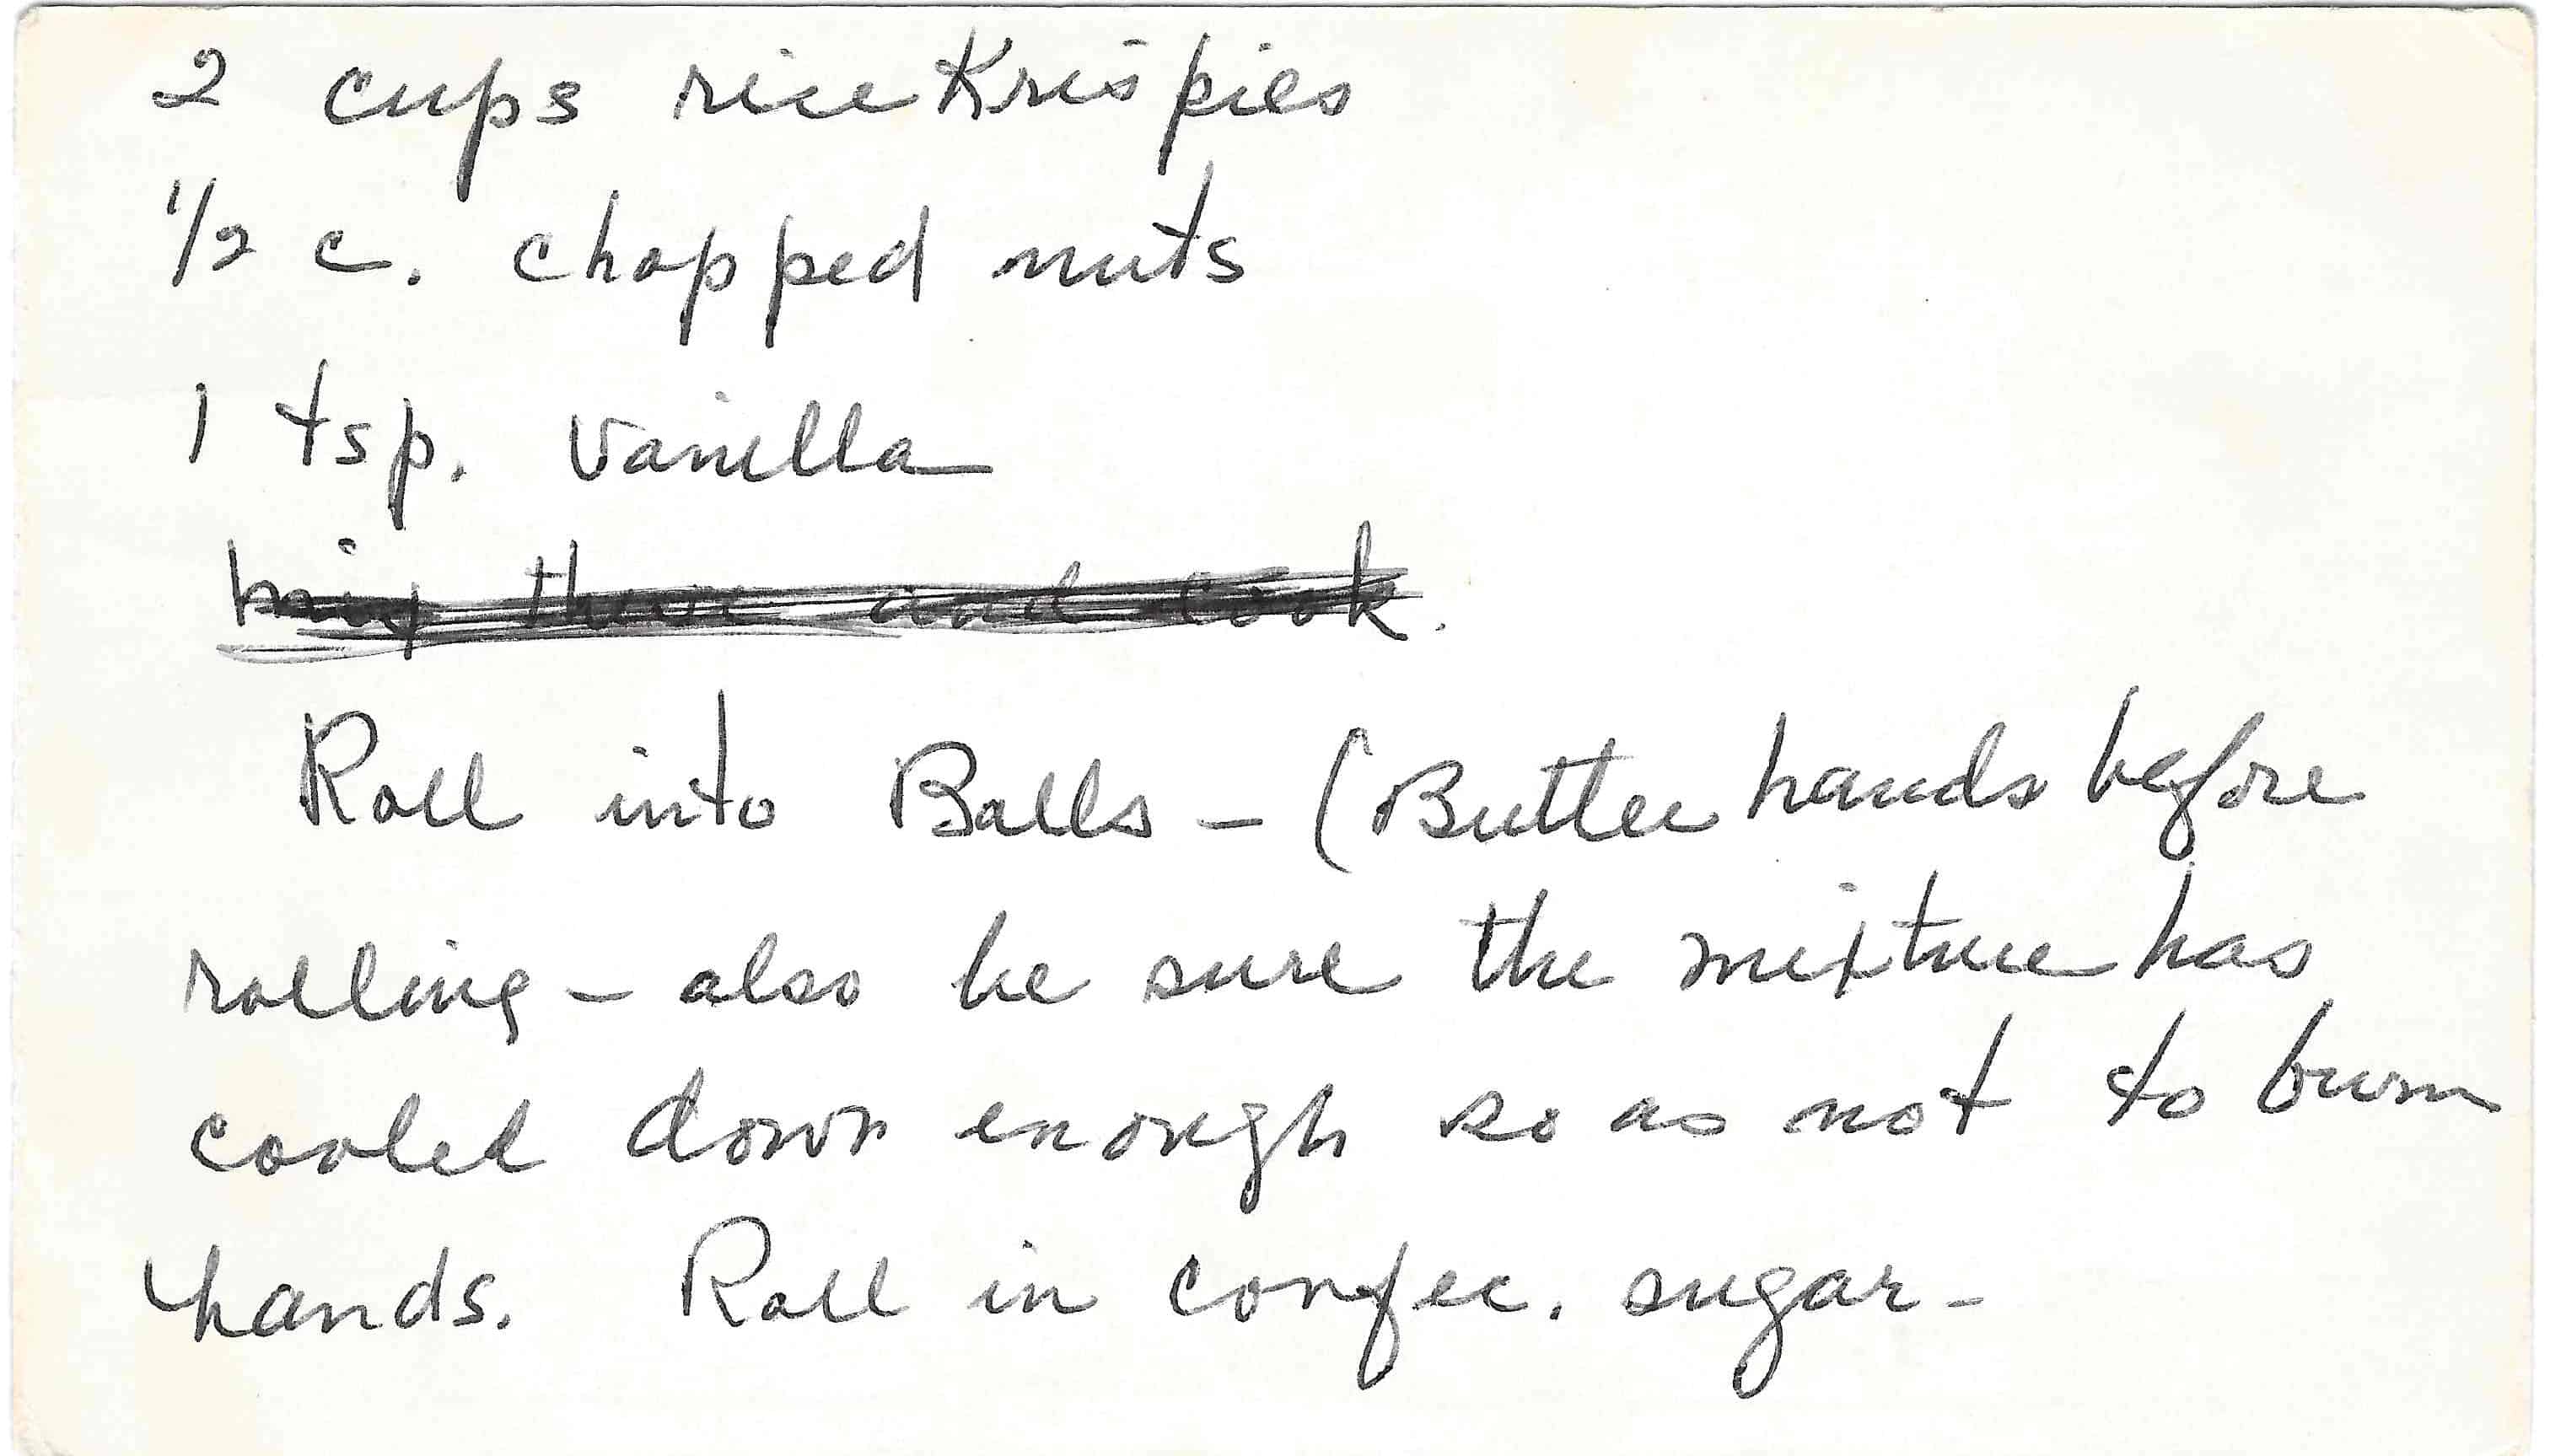 2 cups rice Krispies
1/2 c. chopped nuts
1 tsp. vanilla
and cook.
Roll into Balls - (Butter hands before
rolling - also be sure the mixture has
cooled down enough so as not to burn
hands. Roll in confec. sugar -